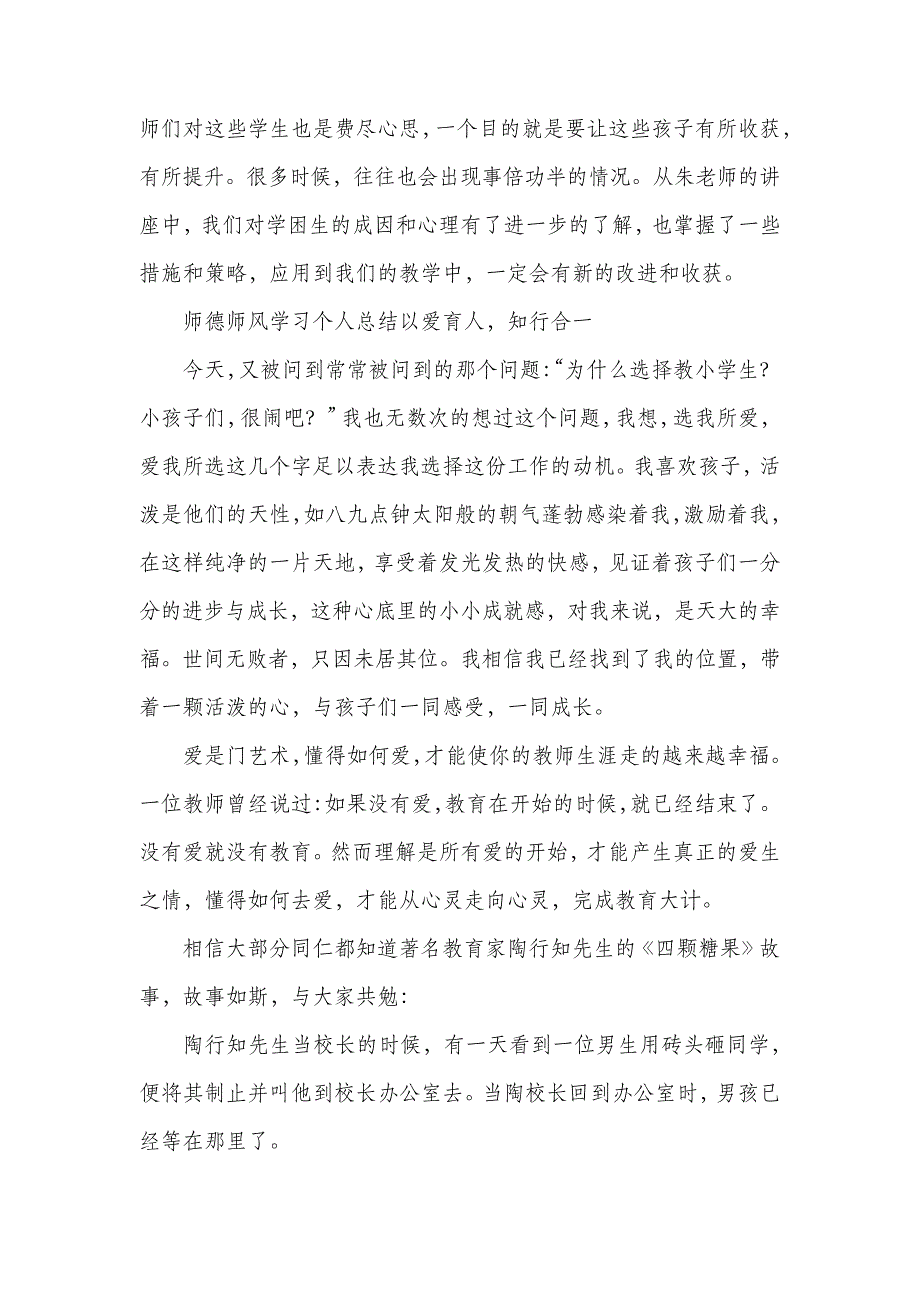 师们对这些学生也是费尽心思，一个目的就是要让这些孩子有所收获，
有所提升。很多时候，往往也会出现事倍功半的情况。从朱老师的讲
座中，我们对学困生的成因和心理有了进一步的了解，也掌握了一些
措施和策略，应用到我们的教学中，一定会有新的改进和收获。
师德师风学习个人总结以爱育人，知行合一
今天，又被问到常常被问到的那个问题：“为什么选择教小学生？
小孩子们，很闹吧？”我也无数次的想过这个问题，我想，选我所爱，
爱我所选这几个字足以表达我选择这份工作的动机。我喜欢孩子，活
泼是他们的天性，如八九点钟太阳般的朝气蓬勃感染着我，激励着我，
在这样纯净的一片天地，享受着发光发热的快感，见证着孩子们一分
分的进步与成长，这种心底里的小小成就感，对我来说，是天大的幸
福。世间无败者，只因未居其位。我相信我已经找到了我的位置，带
着一颗活泼的心，与孩子们一同感受，一同成长。
爱是门艺术，懂得如何爱，才能使你的教师生涯走的越来越幸福。
一位教师曾经说过：如果没有爱，教育在开始的时候，就已经结束了。
没有爱就没有教育。然而理解是所有爱的开始，才能产生真正的爱生
之情，懂得如何去爱，才能从心灵走向心灵，完成教育大计。
相信大部分同仁都知道著名教育家陶行知先生的《四颗糖果》故
事，故事如斯，与大家共勉：
陶行知先生当校长的时候，有一天看到一位男生用砖头砸同学，
便将其制止并叫他到校长办公室去。当陶校长回到办公室时，男孩已
经等在那里了。